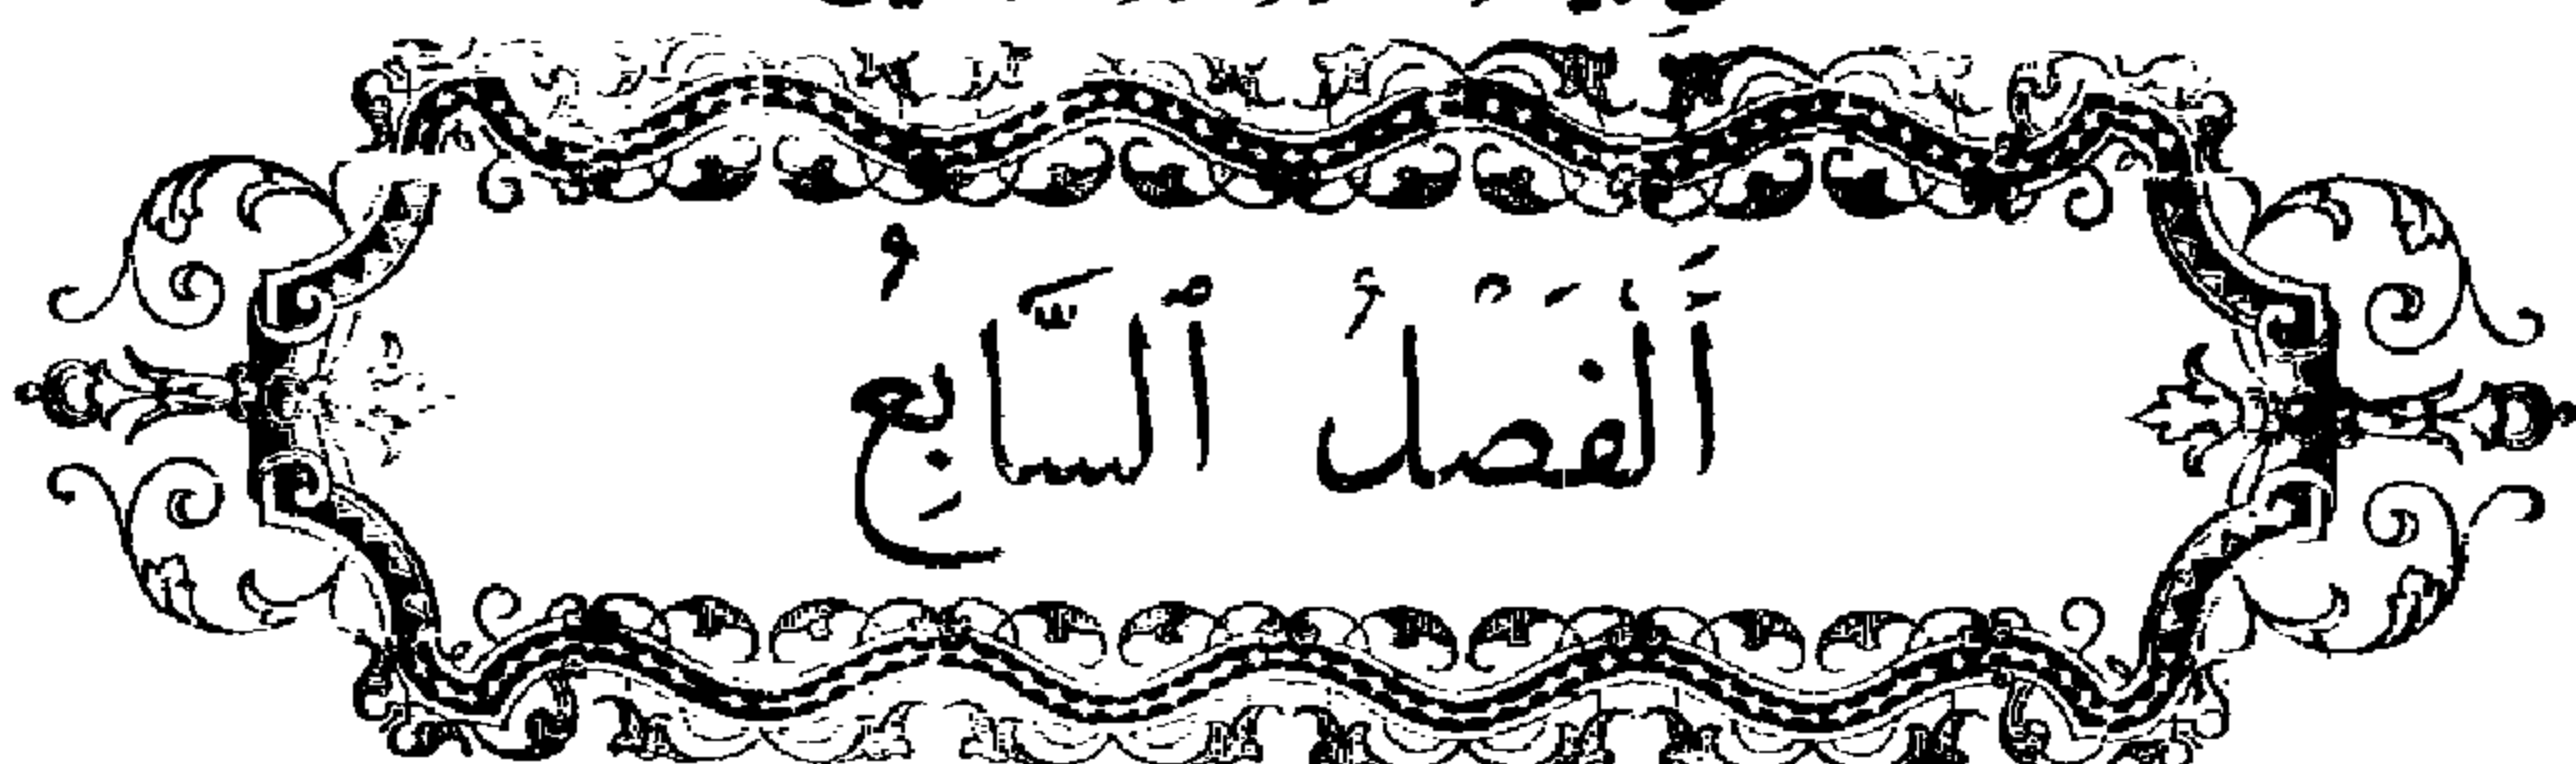 أَلْفَصْلُ ٱلسَّابِعُ